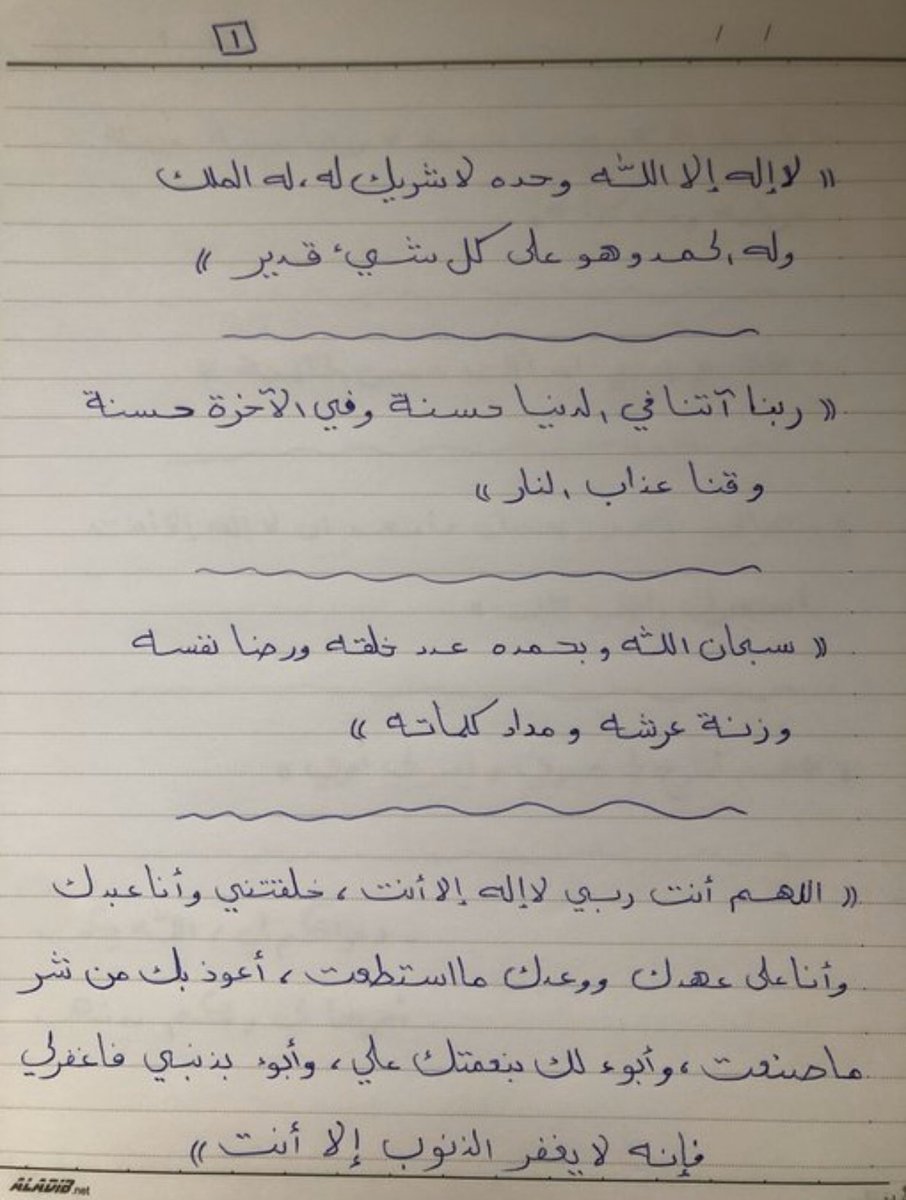 ١
/ /
« لا إله إلا الله وحده لا شريك له، له الملك
وله الحمد وهو على كل شيء قدير »
« ربنا آتنا في الدنيا حسنة وفي الآخرة حسنة
وقنا عذاب النار »
« سبحان الله وبحمده عدد خلقه ورضا نفسه
وزنة عرشه ومداد كلماته »
« اللهم أنت ربي لا إله إلا أنت، خلقتني وأنا عبدك
وأنا على عهدك ووعدك ما استطعت، أعوذ بك من شر
ما صنعت، وأبوء لك بنعمتك علي، وأبوء بذنبي فاغفرلي
فإنه لا يغفر الذنوب إلا أنت »
ALADIB.net